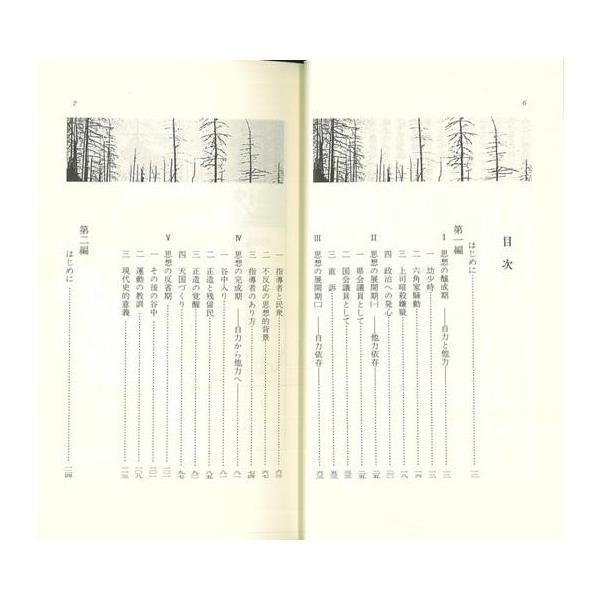 6
目次
はじめに
第一編
Ⅰ 思想の醸成期 ──自力と他力──
一 幼少時
二 六角家騒動
三 上司暗殺嫌疑
四 政治への発心
Ⅱ 思想の展開期(一) ──他力依存
一 県会議員として
二 国会議員として
三 直訴
Ⅲ 思想の展開期(二) ──自力依存
7
一 指導者と民衆
二 不反応の思想的背景
三 指導者のあり方
Ⅳ 思想の完成期 ──自力から他力へ──
一 谷中入り
二 正造と残留民
三 正造の覚醒
四 天国づくり
Ⅴ 思想の反省期
一 その後の谷中
二 運動の教訓
三 現代史的意義
第二編
はじめに